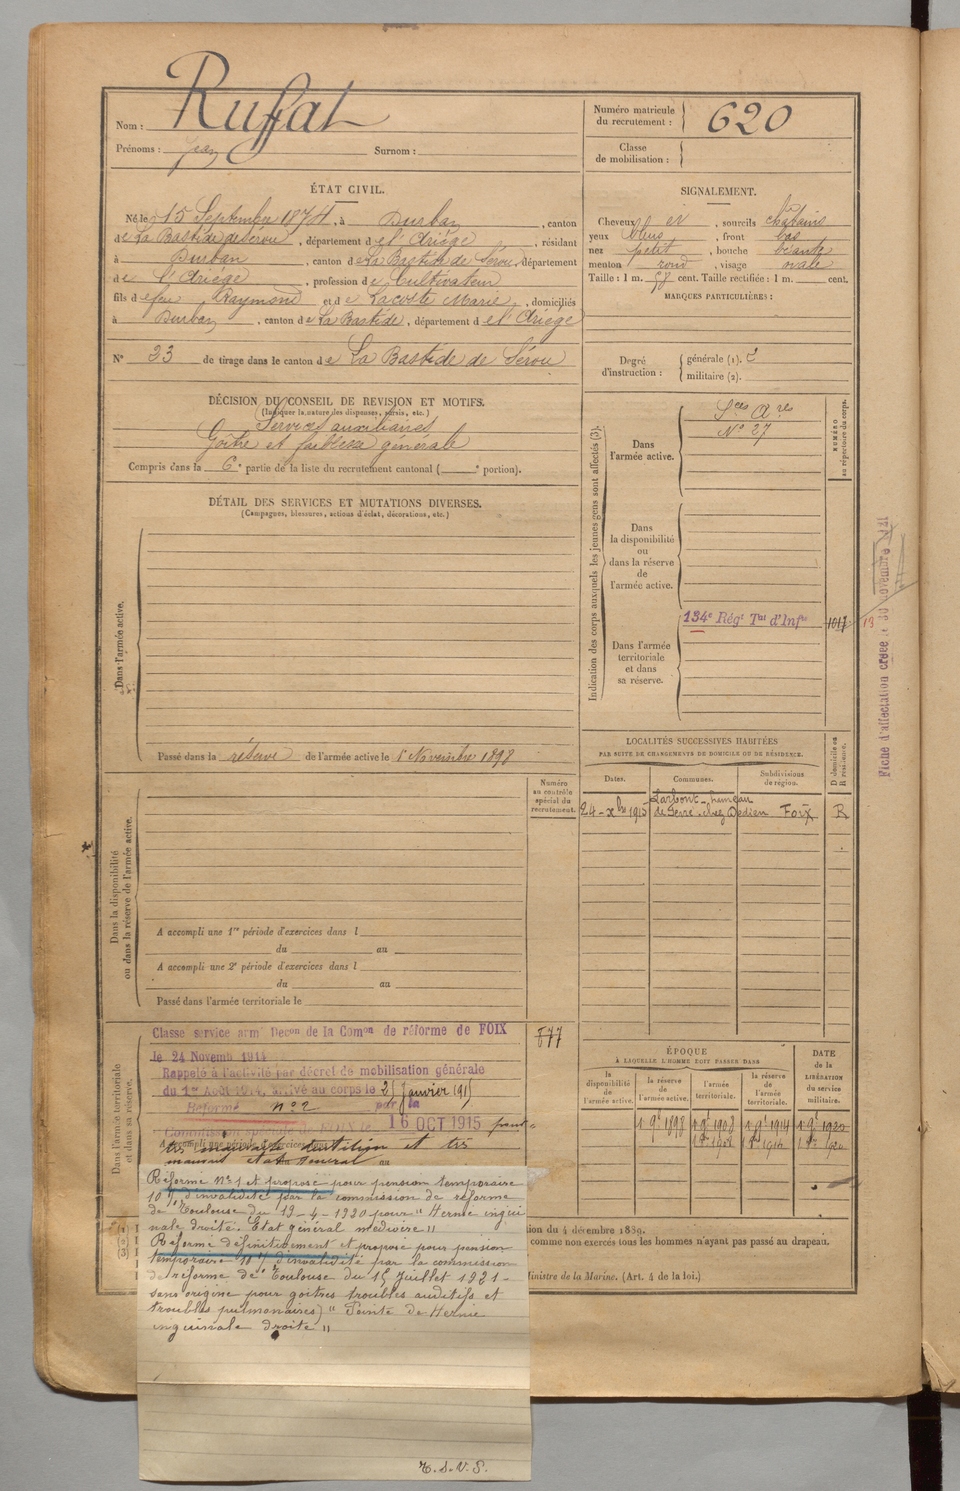 Nom : Ruffat
Prénoms : Jean Surnom :
Numéro matricule du recrutement : 620
Classe de mobilisation :
ÉTAT CIVIL.
Né le 15 Septembre 1874, à Durban, canton
de La Bastide de Sérou, département de l'Ariége, résidant
à Durban, canton de La Bastide de Sérou, département
de l'Ariége, profession de Cultivateur
fils de feu Raymond et de Lacoste Marie, domiciliés
à Durban, canton de La Bastide, département de l'Ariége
N° 23 de tirage dans le canton de La Bastide de Sérou
SIGNALEMENT.
Cheveux et, sourcils châtains
yeux bleus, front bas
nez petit, bouche béante
menton rond, visage ovale
Taille : 1 m. 58 cent. Taille rectifiée : 1 m. cent.
MARQUES PARTICULIÈRES :
Degré d'instruction : générale (1). 2
militaire (2).
DÉCISION DU CONSEIL DE REVISION ET MOTIFS.
(Indiquer la nature des dispenses, sursis, etc.)
Services auxiliaires
Goître et faiblesse générale
Compris dans la 6e partie de la liste du recrutement cantonal ( e portion).
DÉTAIL DES SERVICES ET MUTATIONS DIVERSES.
(Campagnes, blessures, actions d'éclat, décorations, etc.)
Dans l'armée active.
Passé dans la réserve de l'armée active le 1er Novembre 1898
Indication des corps auxquels les jeunes gens sont affectés (3).
Dans l'armée active.
Sces Ares
N° 27
NUMÉRO au répertoire du corps.
Dans la disponibilité ou dans la réserve de l'armée active.
Dans l'armée territoriale et dans sa réserve.
134e Régt Tal d'Infie 1017
13
Fiche d'affectation créée le 30 novembre 1921
LOCALITÉS SUCCESSIVES HABITÉES
PAR SUITE DE CHANGEMENTS DE DOMICILE OU DE RÉSIDENCE.
Dates. Communes. Subdivisions de région. D domicile ou R résidence.
24 - xbre 1915 Larbont - hameau
de Serré - chez Dedieu Foix R
Dans la disponibilité ou dans la réserve de l'armée active.
Numéro au contrôle spécial du recrutement.
A accompli une 1re période d'exercices dans l
du au
A accompli une 2e période d'exercices dans l
du au
Passé dans l'armée territoriale le
Dans l'armée territoriale et dans sa réserve.
Classé service armé Décon de la Comon de réforme de FOIX
le 24 Novemb 1914
877
Rappelé à l'activité par décret de mobilisation générale
du 1er Août 1914, arrivé au corps le 2 Janvier 1915
Réformé n° 2 par la
Commission spéciale de FOIX le 16 OCT 1915 pour
A accompli une période d'exercices dans
très mauvaise dentition et très
mauvais état général
du au
ÉPOQUE
À LAQUELLE L'HOMME DOIT PASSER DANS
DATE DE LA LIBÉRATION du service militaire.
la disponibilité de l'armée active. la réserve de l'armée active. l'armée territoriale. la réserve de l'armée territoriale.
1 9bre 1898 1 9bre 1908 1 9bre 1914 1 9bre 1920
Réformé n° 1 et proposé pour pension temporaire
10 % d'invalidité par la commission de réforme
de Toulouse du 19-4-1920 pour " Hernie ingui
nale droite. Etat général médiocre "
Réformé définitivement et proposé pour pension
temporaire 10 % d'invalidité par la commission
de réforme de Toulouse du 15 Juillet 1921 -
sans origine pour goitres troubles auditifs et
troubles pulmonaires) " Pointe de Hernie
inguinale droite "
T. S. V. P.
tion du 4 décembre 1889.
comme non exercés tous les hommes n'ayant pas passé au drapeau.
Ministre de la Marine. (Art. 4 de la loi.)